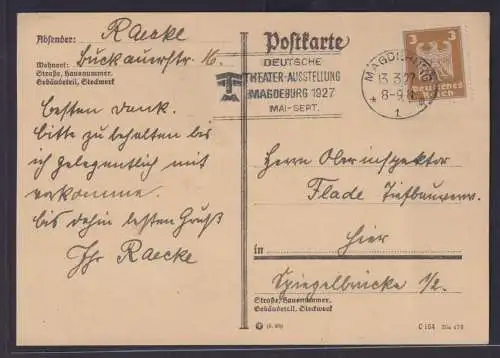 Absender: Raecke
Wohnort: Buckauerstr. 16.
Straße, Hausnummer,
Gebäudeteil, Stockwerk
besten Dank.
bitte zu behalten bis
ich gelegentlich mit
vorkomme.
bis dahin besten Gruß
Ihr Raecke
Postkarte
DEUTSCHE
THEATER-AUSSTELLUNG
MAGDEBURG 1927
MAI-SEPT.
MAGDEBURG
13.3.27
8-9
* 1
3 3
Deutsches
Reich
Herrn Oberinspektor
Flade Tiefbauverw.
in Hier
Spiegelbrücke 1/2.
Straße, Hausnummer,
Gebäudeteil, Stockwerk
C 154 Din 476